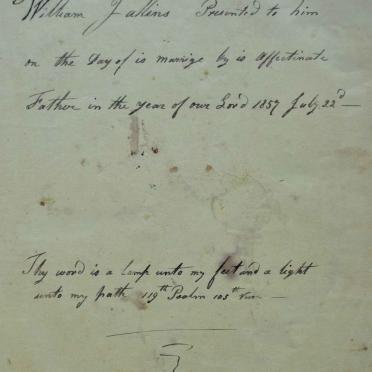 William Jallins Presented to him
on the Day of is marrige by is affectinate
Father in the year of our Lord 1857 July 22d —
Thy word is a lamp unto my feet and a light
unto my path 119th Psalm 105th Vers —